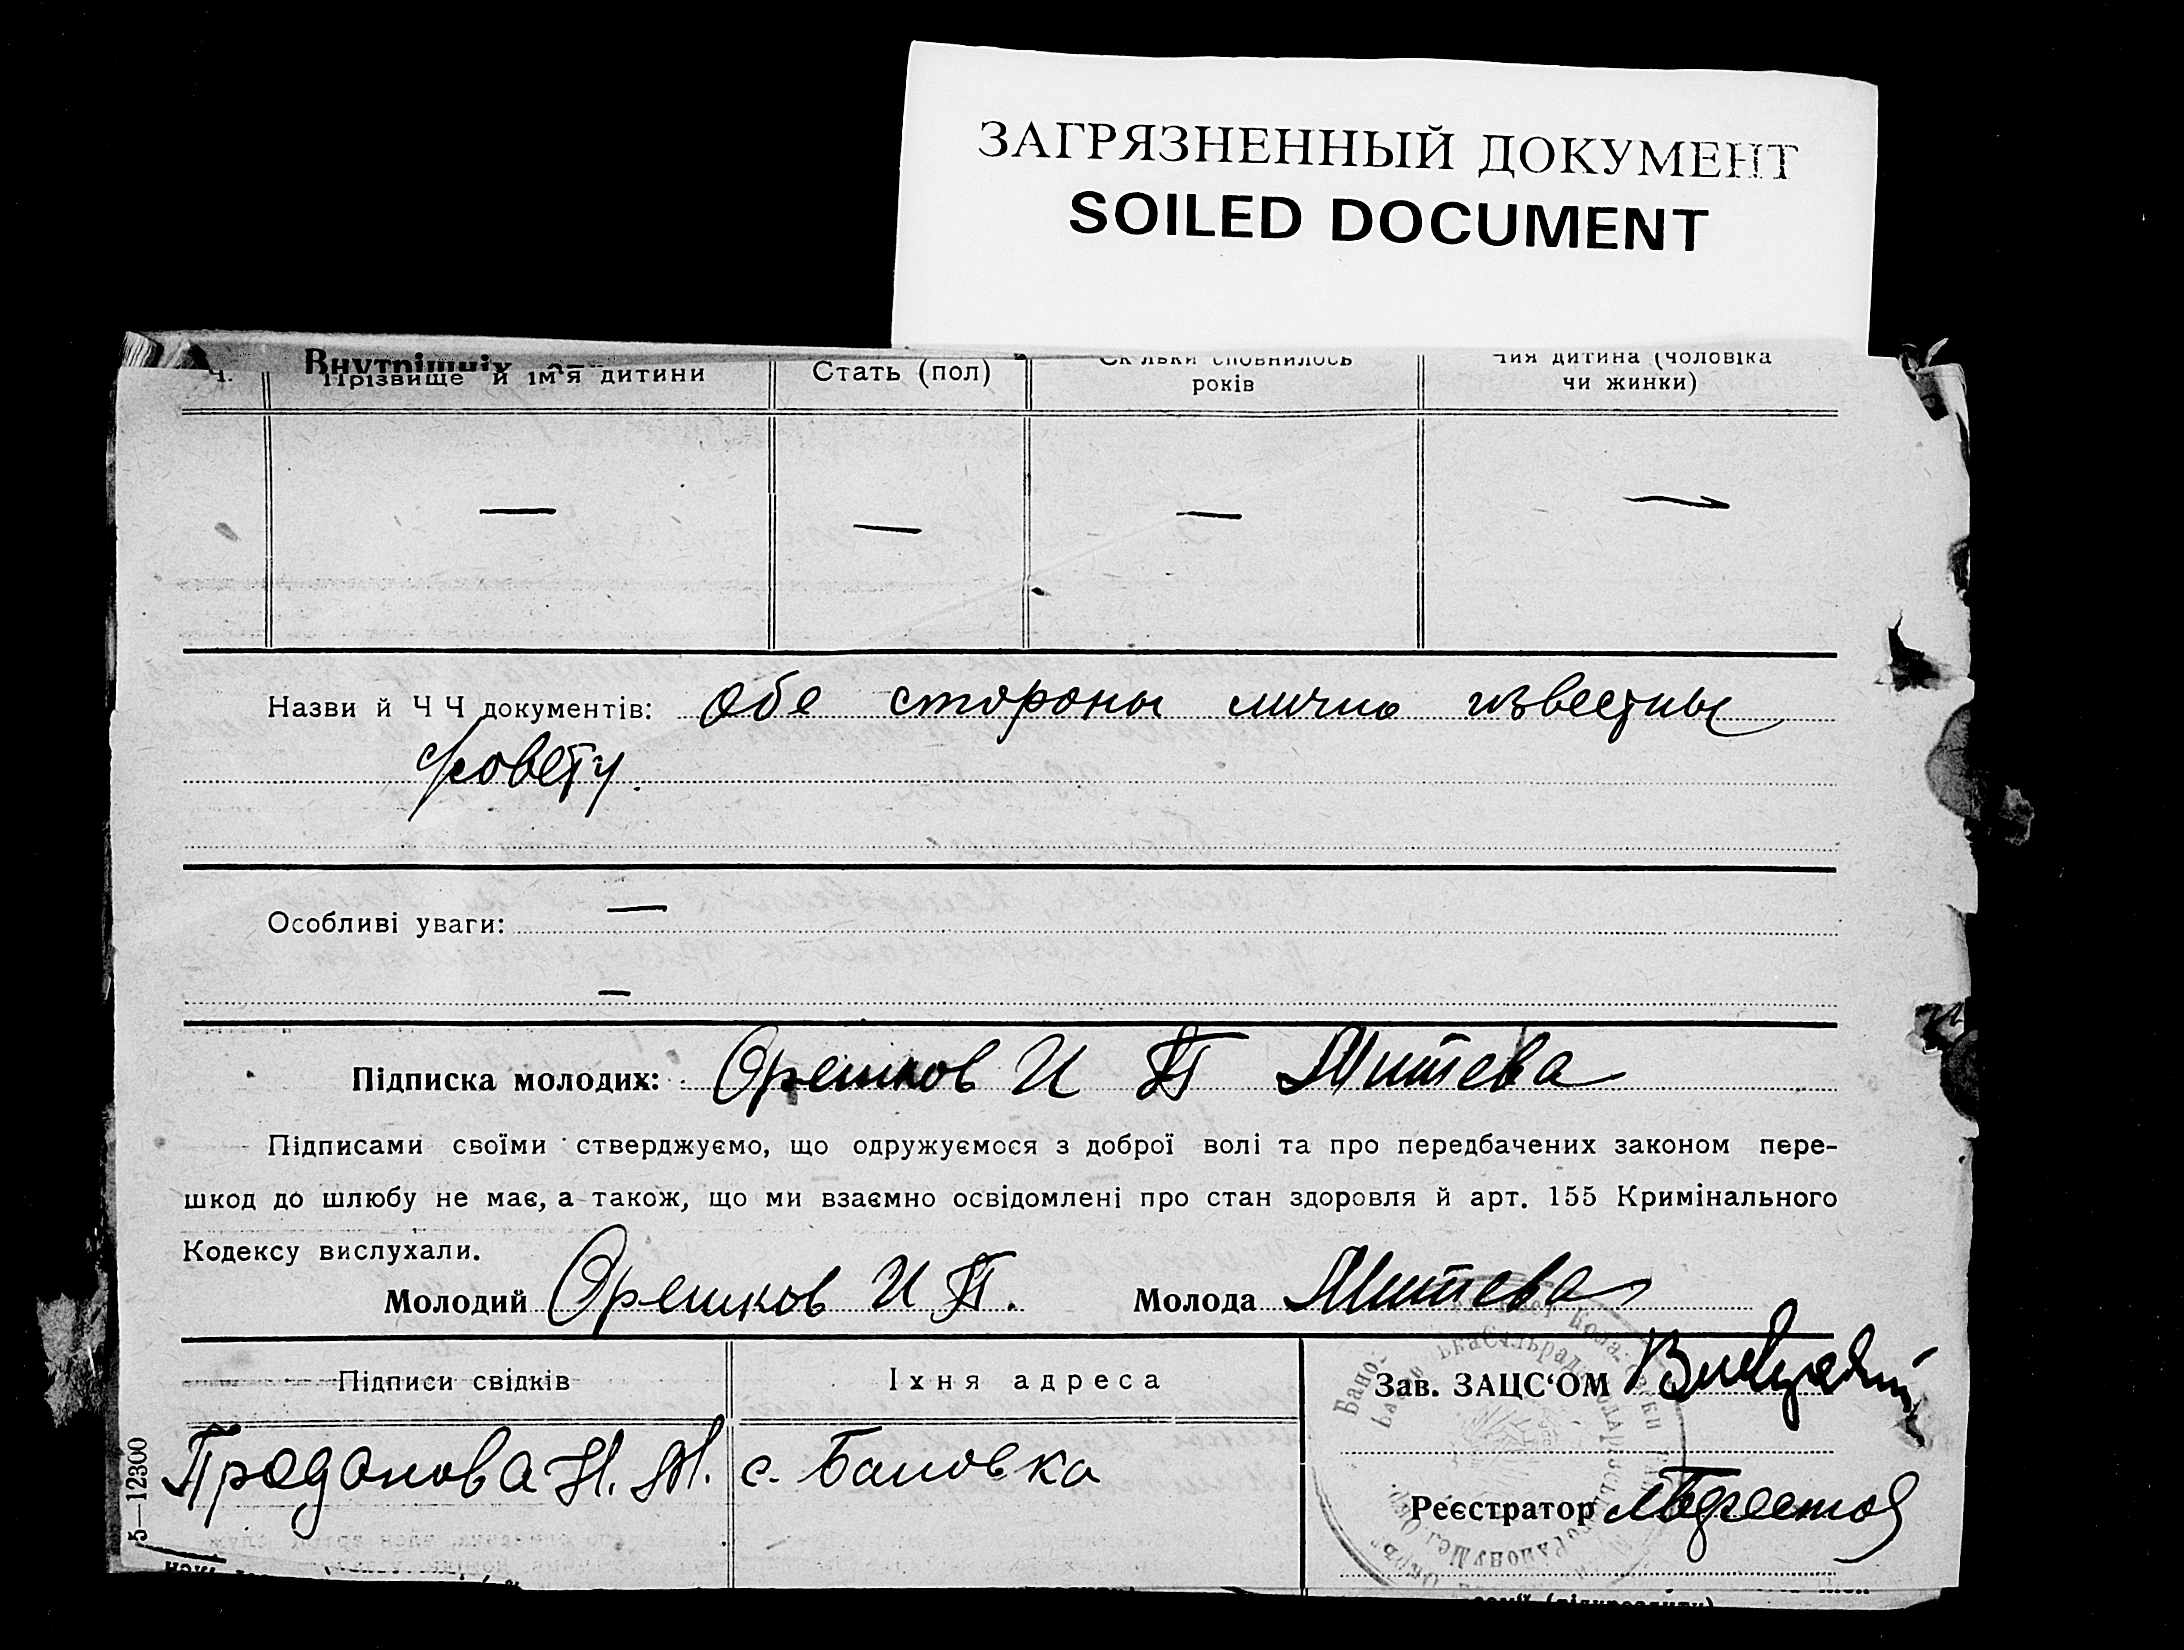 ЗАГРЯЗНЕННЫЙ ДОКУМЕНТ
SOILED DOCUMENT
Внутрішніх
Ч. Прізвище й ім'я дитини Стать (пол) Скільки сповнилось років Чия дитина (чоловіка чи жинки)
— — — —
Назви й Ч Ч документів: Обе стороны лично известны
с/совету.
Особливі уваги: —
—
Підписка молодих: Орешков И П Митева
Підписами своїми стверджуємо, що одружуємося з доброї волі та про передбачених законом пере-
шкод до шлюбу не має, а також, що ми взаємно освідомлені про стан здоровля й арт. 155 Кримінального
Кодексу вислухали.
Молодий Орешков И П. Молода Митева
Підписи свідків Їхня адреса Зав. ЗАЦС‘ОМ
Проданова Н. М. с. Бановка
Реєстратор
5—12300